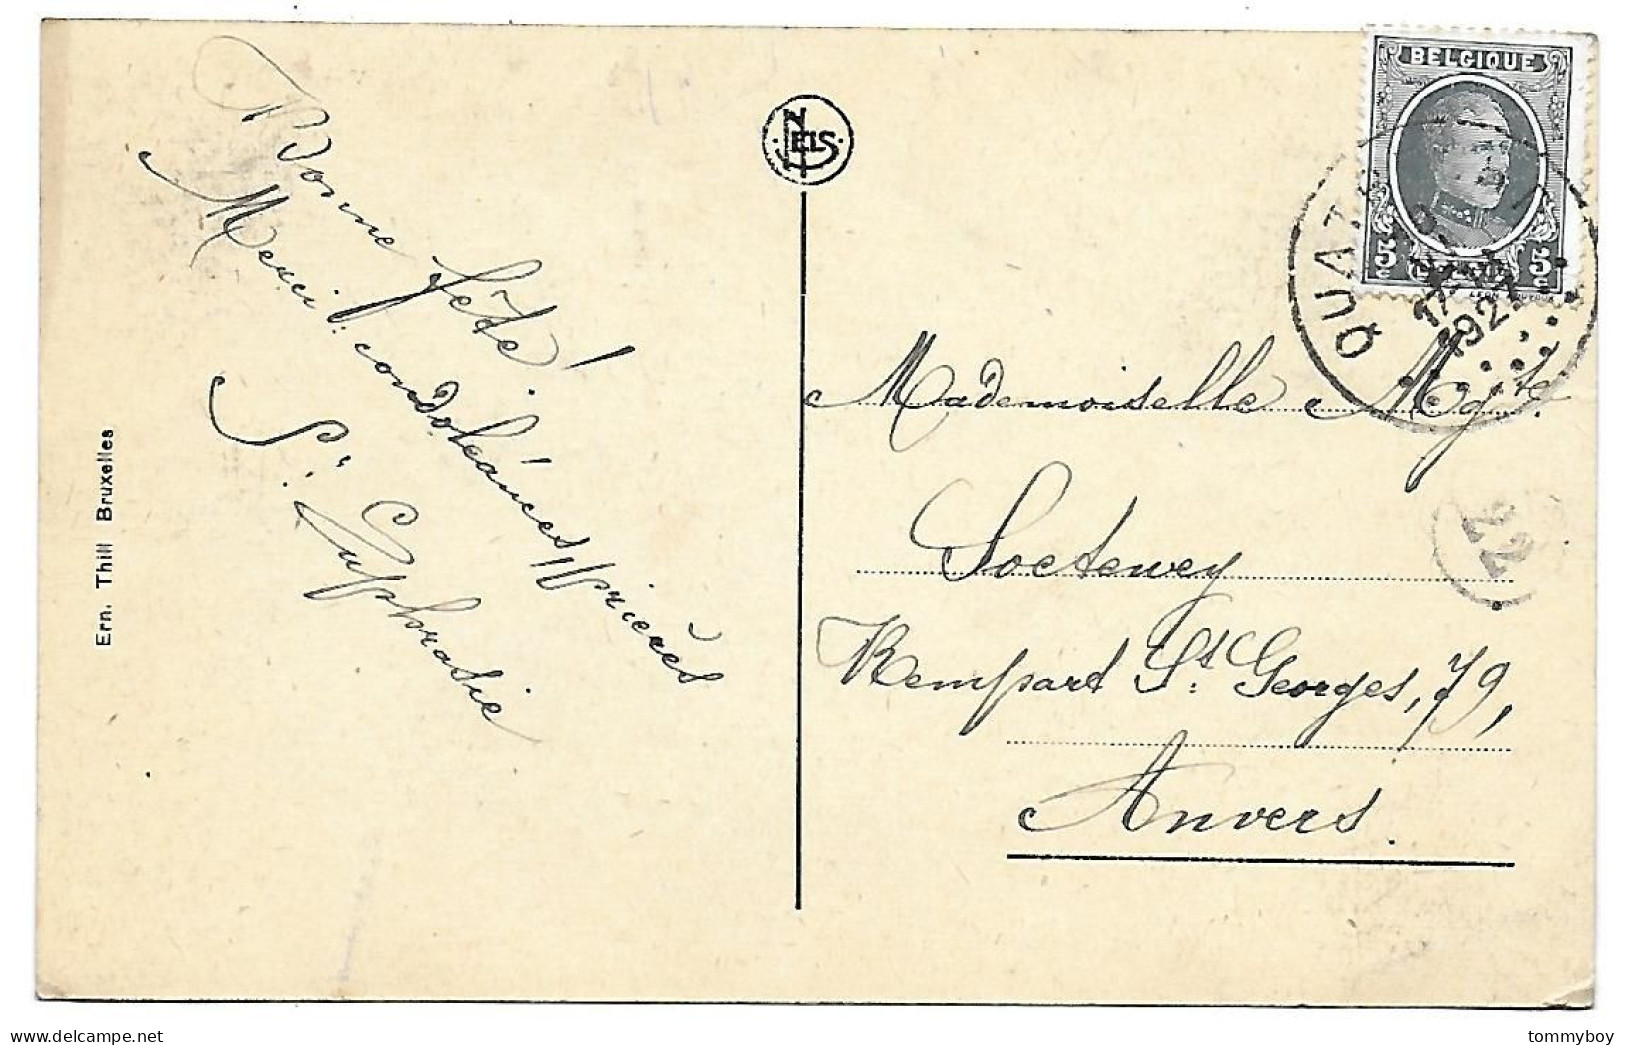 Bonne fête!
Merci: condoléances, prières
Sr. Euphrasie
Ern. Thill Bruxelles
NELS
BELGIQUE
5c 5c
QUAT
17
1927
Mademoiselle Mgte.
Soetewey
Rempart St. Georges, 79,
Anvers.
22
tommyboy